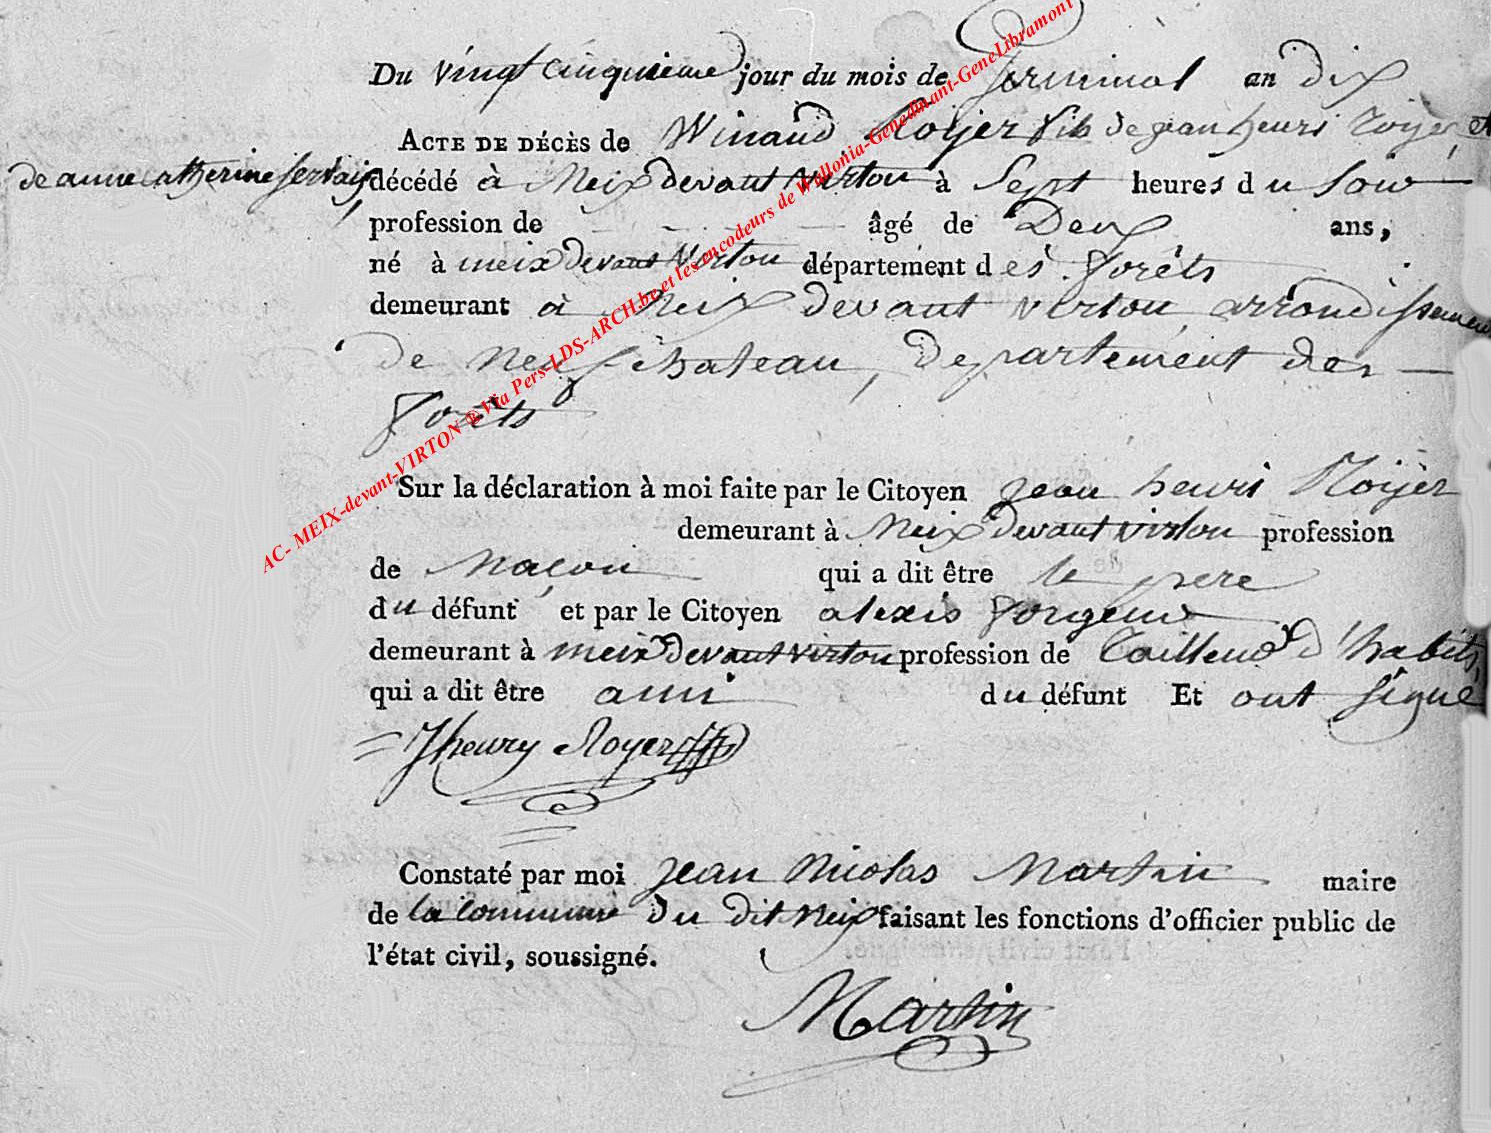 Du vingt cinquieme jour du mois de Germinal an dix
ACTE DE DÉCÈS de Winand Royer fils de jean henri Royer, et
de anne catherine servais,
décédé à Meix devant virton à Sept heures du soir
profession de — âgé de Deux ans,
né à meix devant Virton département des forêts
demeurant à Meix devant virton, arrondissement
de neufchateau, departement des
forêts
Sur la déclaration à moi faite par le Citoyen jean henri Royer
demeurant à Meix devant virton profession
de Maçon qui a dit être le pere
du défunt et par le Citoyen alexis
demeurant à meix devant virton profession de Tailleur d'habits,
qui a dit être ami du défunt Et ont signé
Jhenry Royer
Constaté par moi jean Nicolas Martin maire
de la commune du dit Meix faisant les fonctions d'officier public de
l'état civil, soussigné.
Martin
AC- MEIX-devant-VIRTON ® Via Pers-LDS-ARCH.be et les encodeurs de Wallonia-Genedinant-GeneLibramont